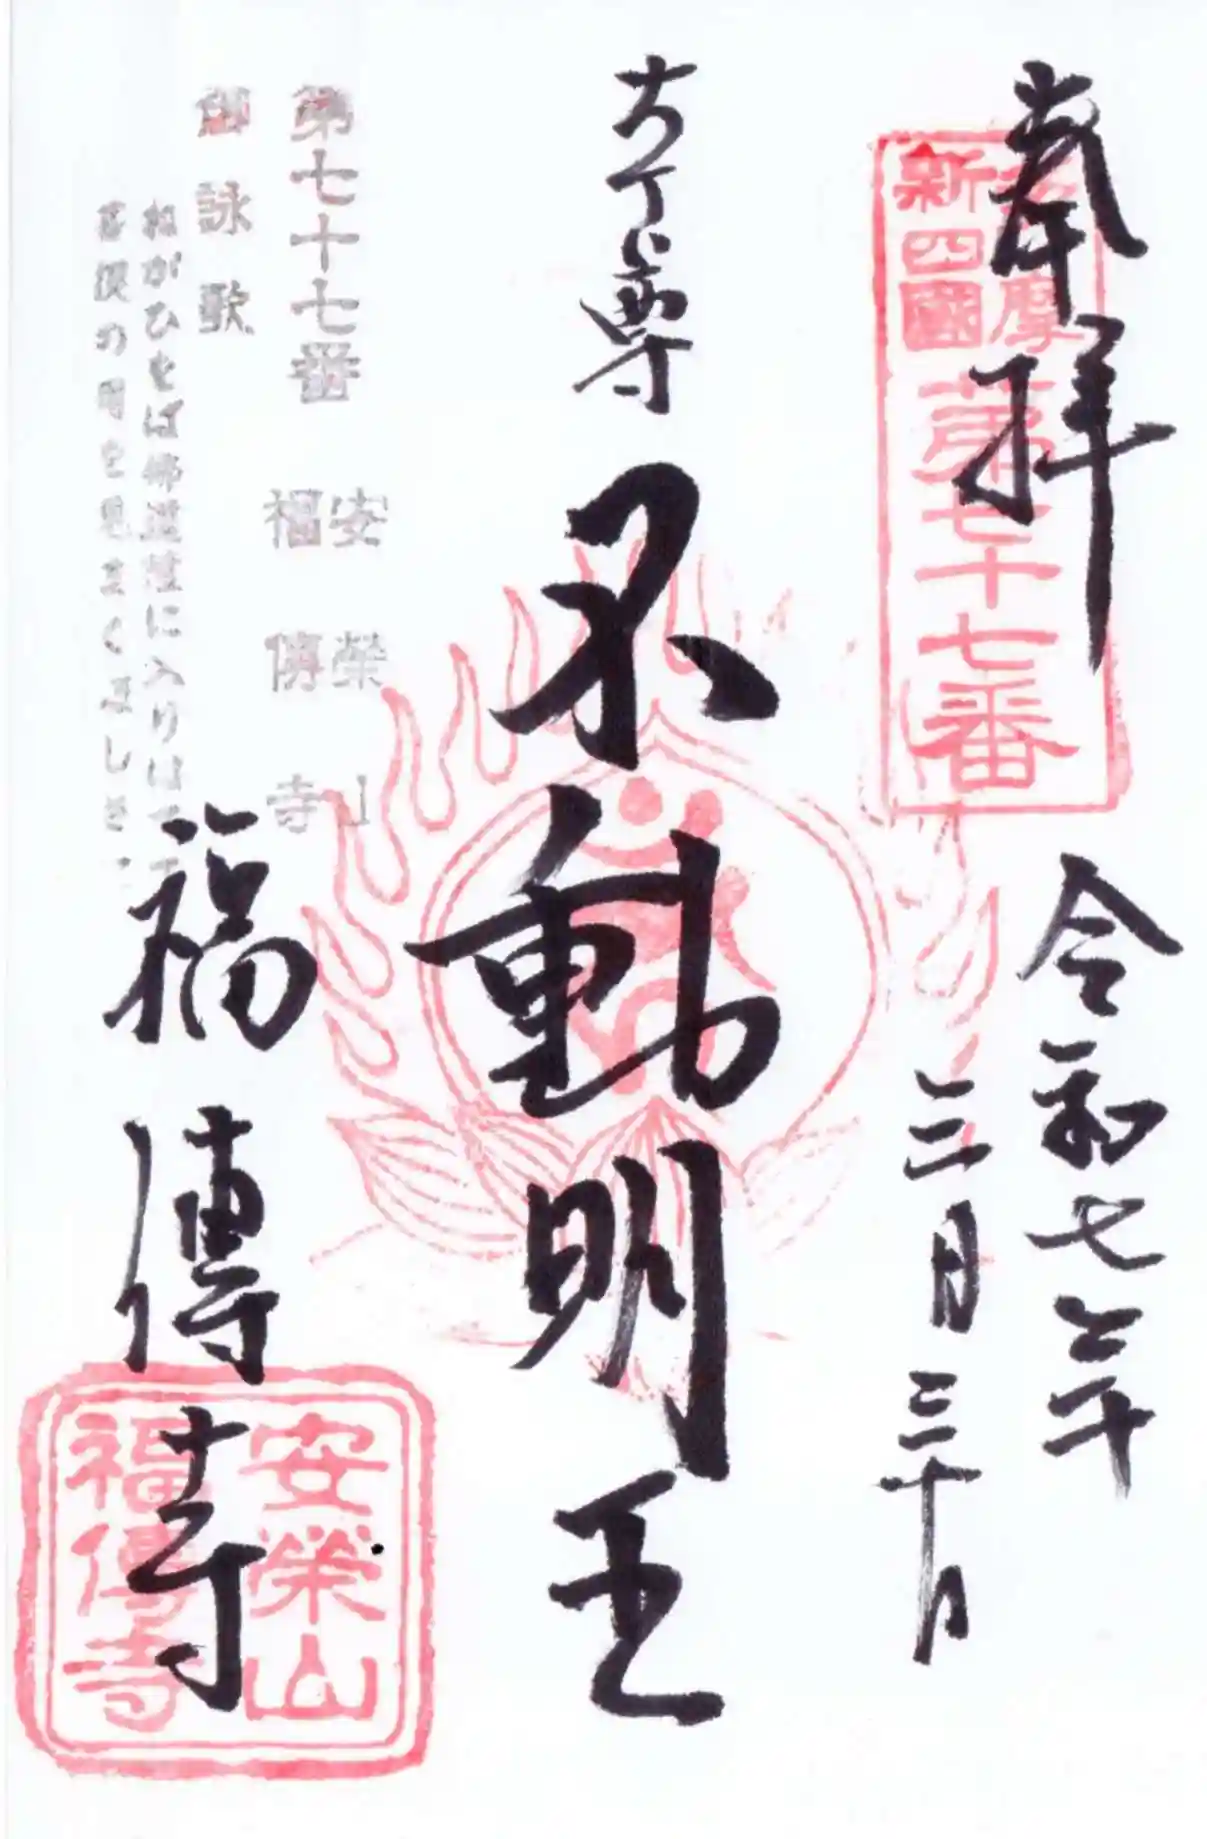 奉拝
多摩
新四國
第七十七番
令和七年
三月三十日
本尊
不動明王
第七十七番
安榮山
福傳寺
御詠歌
ねがひをば佛道隆に入りはてて
菩提の月を見まくほしさに
福傳寺
安榮山
福傳寺